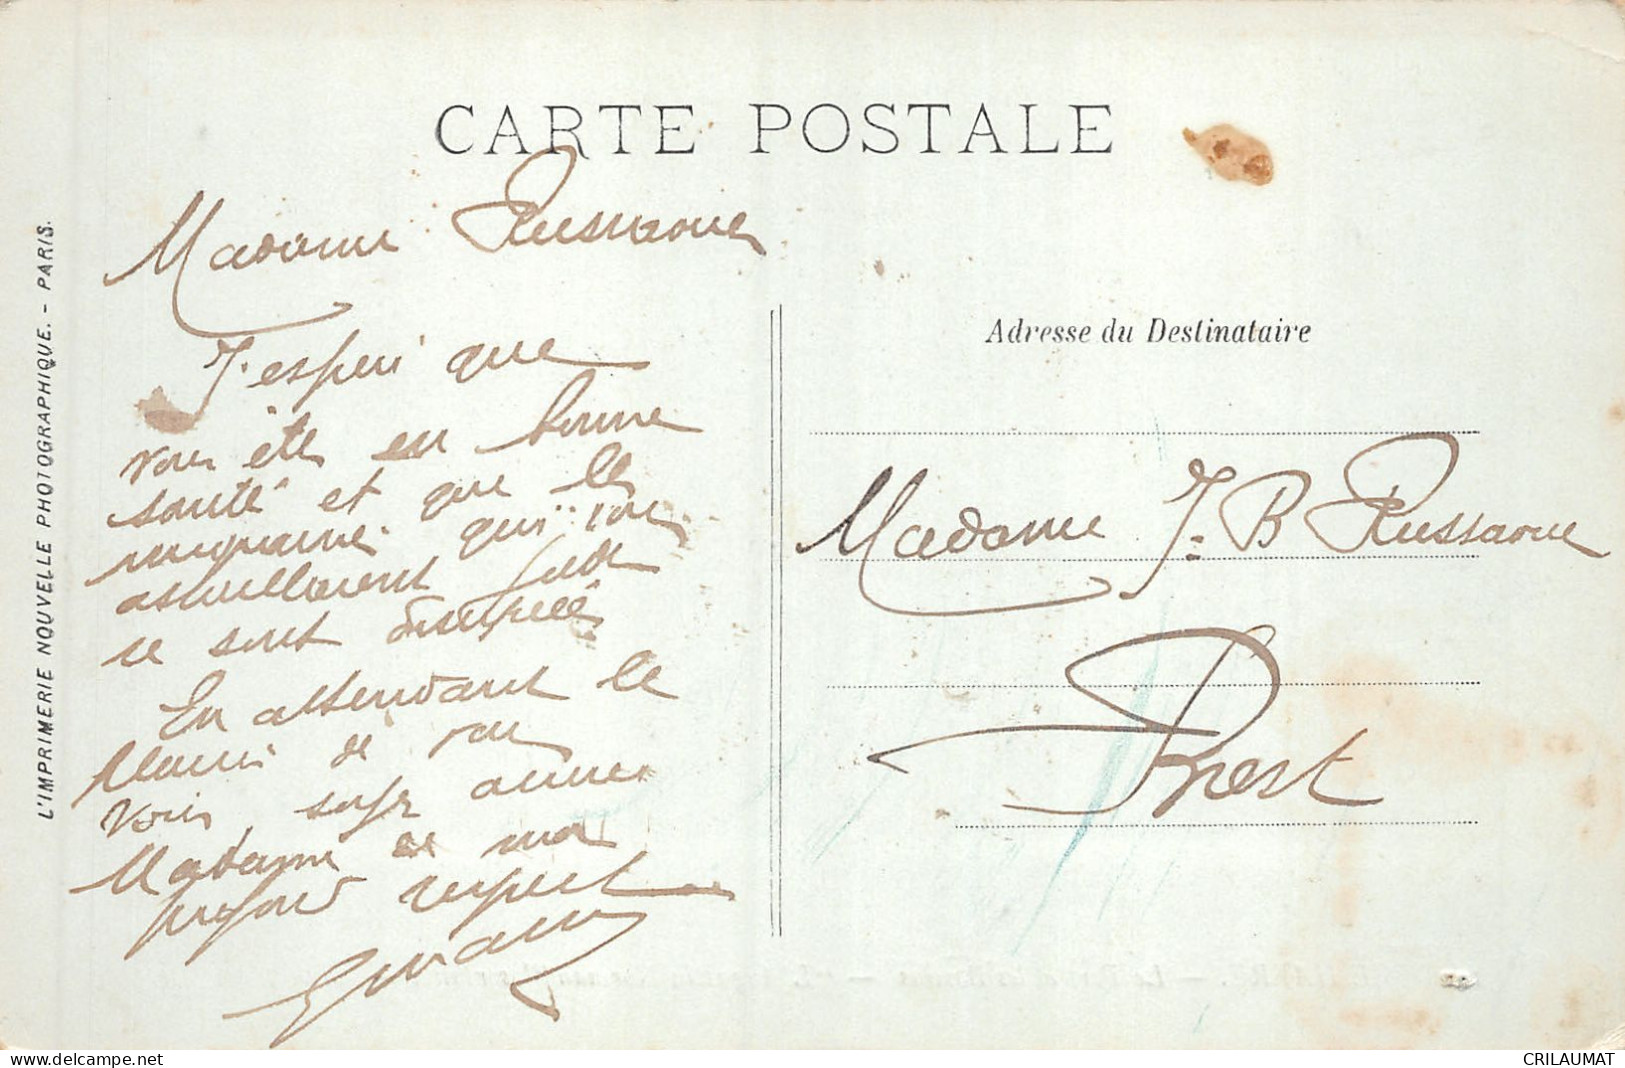 CARTE POSTALE
L'IMPRIMERIE NOUVELLE PHOTOGRAPHIQUE. - PARIS.
Madame Russaouen
J'esperi que
vous êtes en bonne
santé et que les
migraines qui vous
assaillaient
se sont dissipées
En attendant le
plaisir de vous
voir,
Madame de mon
profond respect
Adresse du Destinataire
Madame J. B Russaouen
Brest
CRILAUMAT